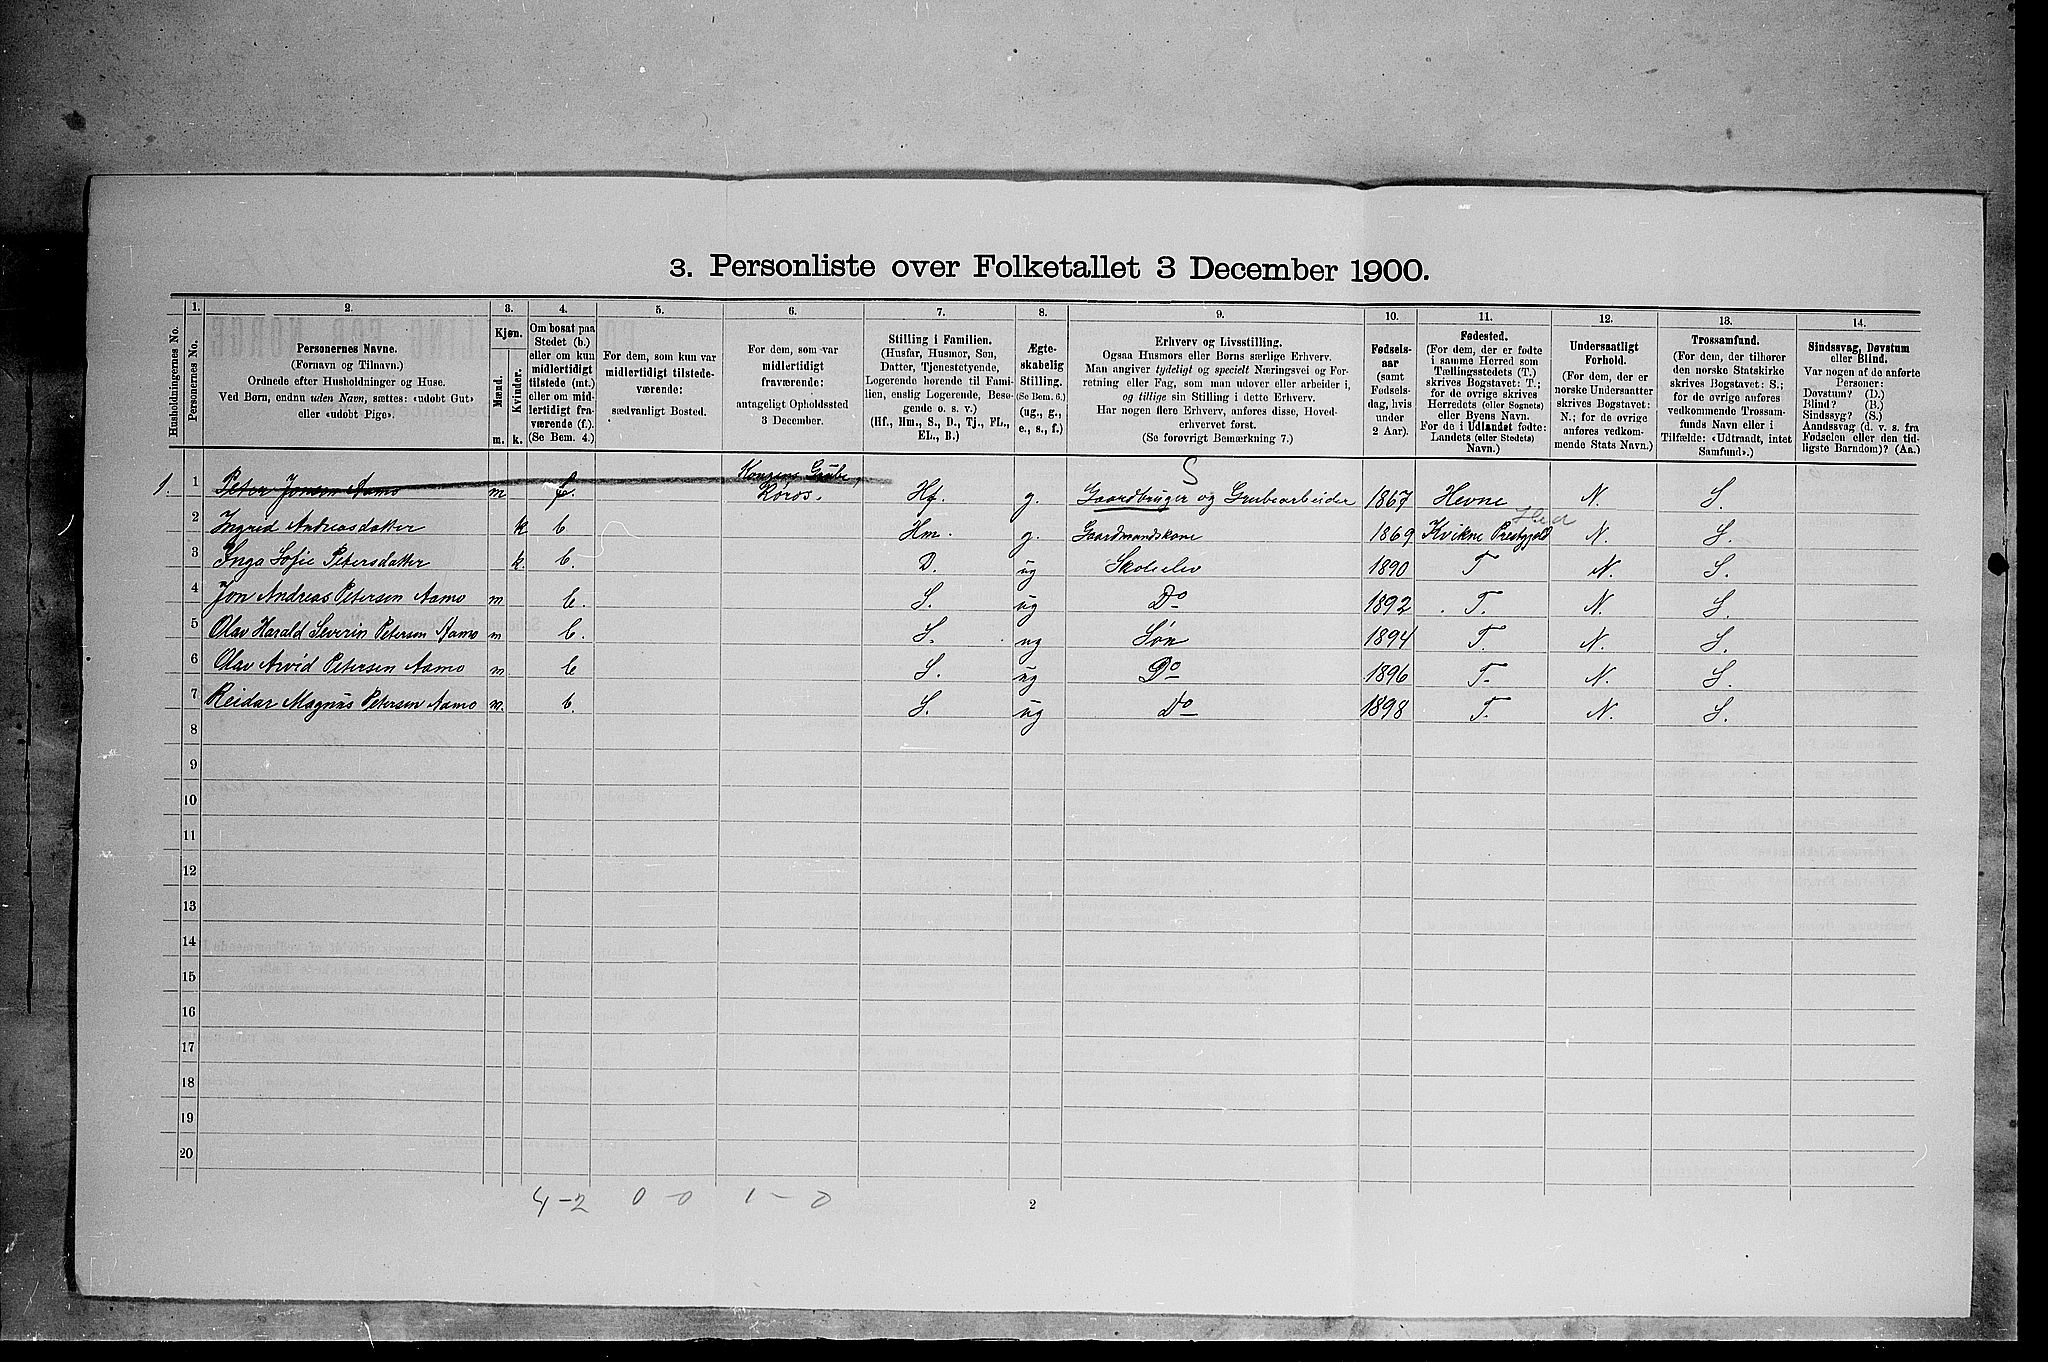 3. Personliste over Folketallet 3 December 1900.
Husholdningernes No.
1.
Personernes No.
2.
Personernes Navne.
(Fornavn og Tilnavn.)
Ordnede efter Husholdninger og Huse.
Ved Børn, endnu uden Navn, sættes: «udøbt Gut»
eller «udøbt Pige».
3.
Kjøn.
Mænd.
Kvinder.
m. k.
4.
Om bosat paa
Stedet (b.)
eller om kun
midlertidigt
tilstede (mt.)
eller om mid-
lertidigt fra-
værende (f.).
(Se Bem. 4.)
5.
For dem, som kun var
midlertidigt tilstede-
værende:
sædvanligt Bosted.
6.
For dem, som var
midlertidigt
fraværende:
antageligt Opholdssted
3 December.
7.
Stilling i Familien.
(Husfar, Husmor, Søn,
Datter, Tjenestetyende,
Logerende hørende til Fami-
lien, enslig Logerende, Besø-
gende o. s. v.)
(Hf., Hm., S., D., Tj., FL.,
EL., B.)
8.
Ægte-
skabelig
Stilling.
(Se Bem. 6.)
(ug., g.,
e., s., f.)
9.
Erhverv og Livsstilling.
Ogsaa Husmors eller Børns særlige Erhverv.
Man angiver tydeligt og specielt Næringsvei og For-
retning eller Fag, som man udover eller arbeider i,
og tillige sin Stilling i dette Erhverv.
Har nogen flere Erhverv, anføres disse, Hoved-
erhvervet først.
(Se forøvrigt Bemærkning 7.)
10.
Fødsels-
aar
(samt
Fødsels-
dag, hvis
under
2 Aar).
11.
Fødested.
(For dem, der er fødte
i samme Herred som
Tællingsstedets (T.)
skrives Bogstavet: T.;
for de øvrige skrives
Herredets (eller Sognets)
eller Byens Navn.
For de i Udlandet fødte:
Landets (eller Stedets)
Navn.)
12.
Undersaatligt
Forhold.
(For dem, der er
norske Undersaatter
skrives Bogstavet:
N.; for de øvrige
anføres vedkom-
mende Stats Navn.)
13.
Trossamfund.
(For dem, der tilhører
den norske Statskirke
skrives Bogstavet: S.;
for de øvrige anføres
vedkommende Trossam-
funds Navn eller i
Tilfælde: «Udtraadt, intet
Samfund».)
14.
Sindssvag, Døvstum
eller Blind.
Var nogen af de anførte
Personer:
Døvstum? (D.)
Blind? (B.)
Sindssyg? (S.)
Aandssvag (d. v. s. fra
Fødselen eller den tid-
ligste Barndom)? (Aa.)
Kongens Grube, S
1. 1 Peter Jonsen Aamo m f. Røros. Hf. g. Gaardbruger og Grubearbeider 1867 Hevne N. S.
Hed
2 Ingrid Andreasdatter k b Hm. g. Gaardmandskone 1869 Kvikne Prestgjeld N. S.
3 Inga Sofie Petersdatter k. b. D. ug Skoleelev 1890 T N. S.
4 Jon Andreas Petersen Aamo m b. S. ug Do 1892 T. N. S.
5 Olav Harald Severin Petersen Aamo m b. S. ug Søn 1894 T. N. S.
6 Olav Arvid Petersen Aamo m. b S. ug Do 1896 T. N. S.
7 Reidar Magnus Petersen Aamo m. b. S. ug Do 1898 T. N. S.
8
9
10
11
12
13
14
15
16
17
18
19
20
4-2 0-0 1-0
2